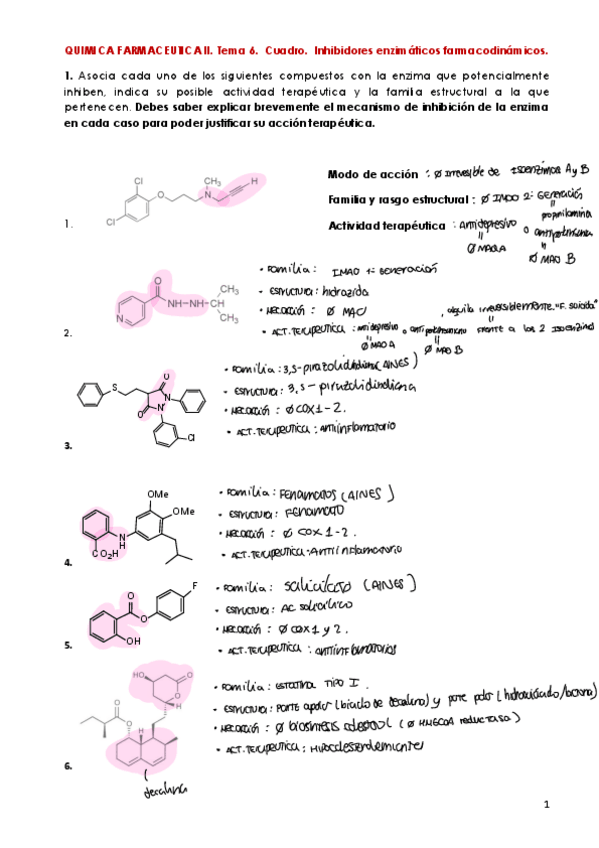 QUIMICA FARMACEUTICA II. Tema 6. Cuadro. Inhibidores enzimáticos farmacodinámicos.
1. Asocia cada uno de los siguientes compuestos con la enzima que potencialmente
inhiben, indica su posible actividad terapéutica y la familia estructural a la que
pertenecen. Debes saber explicar brevemente el mecanismo de inhibición de la enzima
en cada caso para poder justificar su acción terapéutica.
Modo de acción : Ø irreversible de isoenzimas A y B
Familia y rasgo estructural : Ø IMAO 2ª Generación
propilamina
Actividad terapéutica : Antidepresivo o antiparkinsoniano
Ø MAO A
Ø MAO B
Cl
Cl
O
CH3
N
H
1.
• Familia : IMAO 1ª Generación
• Estructura : hidrazida
• Mecacción : Ø MAO , alquila irreversiblemente. "F. suicida"
• Act. Terapeutica : antidepresivo o antiparkinsoniano frente a los 2 isoenzimas
Ø MAO A
Ø MAO B
O
NH-NH
CH3
CH3
N
2.
• Familia : 3,5-pirazolidindiona (AINES)
• Estructura : 3,5-pirazolidindiona
• Mecacción : Ø COX 1-2.
• Act. Terapeutica : Antiinflamatorio
S
O
O
N
N
Cl
3.
• Familia : Fenamatos (AINES)
• Estructura : Fenamato
• Mecacción : Ø COX 1-2.
• Act. Terapeutica : Antiinflamatorio
OMe
OMe
N
H
CO2H
4.
• Familia : Salicilato (AINES)
• Estructura : Ac salicílico
• Mecacción : Ø COX 1 y 2.
• Act. Terapeutica : antiinflamatorios
F
O
O
OH
5.
• Familia : Estatina Tipo I.
• Estructura : Parte apolar (biciclo de decalina) y parte polar
• Mecacción : Ø biosíntesis colesterol (Ø HMGCoA reductasa)
• Act. Terapeutica : Hipocolesterolemiante
HO
O
O
H
O
O
H
6.
decalina
1